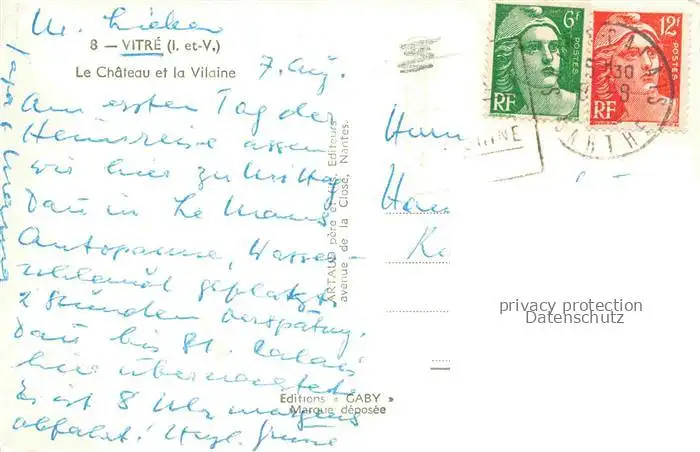 M. Lieben
8 — VITRÉ (I. et-V.)
Le Château et la Vilaine
7. Aug.
Am ersten Tag der
Heimreise assen
wir hier zu Mittag
Dann in Le Mans
Autopanne, Wasser-
schlauch geplatzt
2 Stunden Verspätung.
Dann bis St. Calais
hier übernachtet
Es ist 8 Uhr morgens
abfahrt! Herzl. Grüsse
Papa
ARTAUD père et fils, Editeurs
avenue de la Close, Nantes.
Editions « GABY »
Marque déposée
6F
POSTES
RF
12F
POSTES
RF
CALAIS
SARTHE
privacy protection
Datenschutz